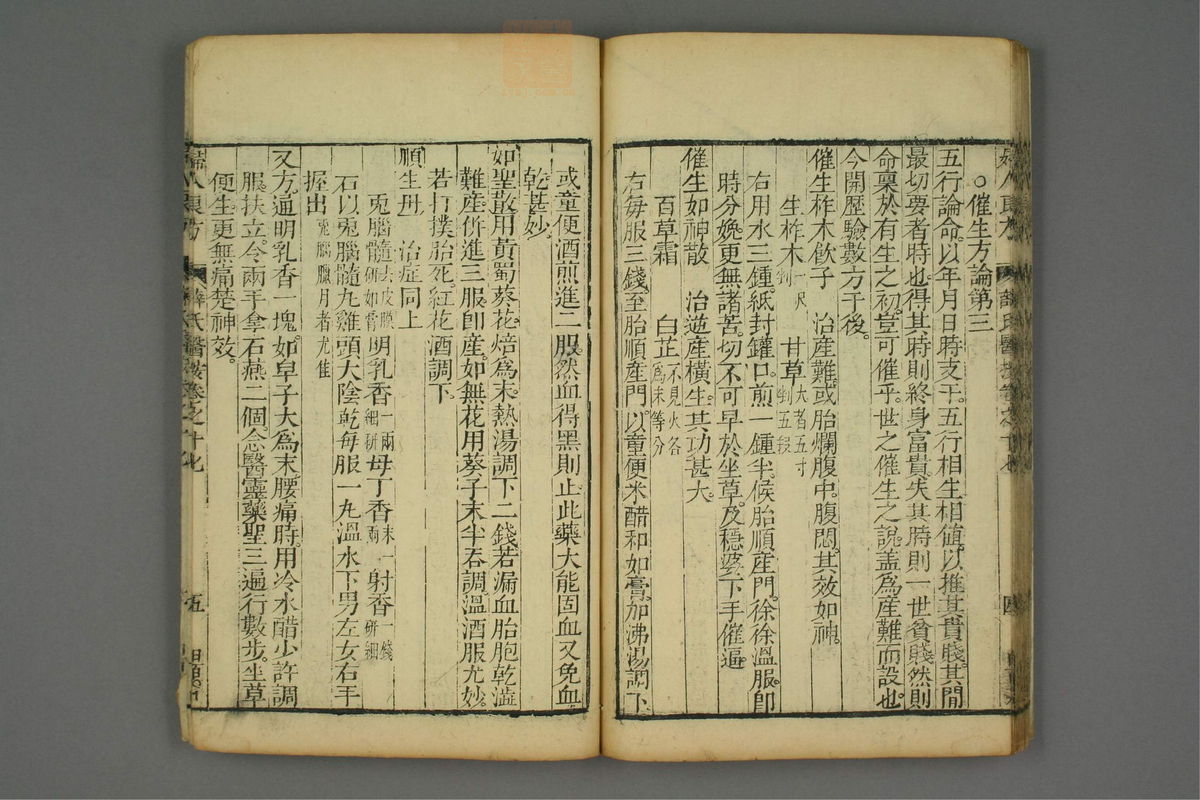 ○催生方論第三
五行論命以年月日時支干五行相生相值以推其貴賤其間
最切要者時也得其時則終身富貴失其時則一世貧賤然則
命稟於有生之初豈可催乎世之催生之說蓋為產難而設也
今開歷驗數方于後
催生柞木飲子 治產難或胎爛腹中腹悶其效如神
生柞木一尺剉 甘草大者五寸剉五段
右用水三鍾紙封罐口煎一鍾半候胎順產門徐徐溫服即
時分娩更無諸苦切不可早於坐草及穩婆下手催逼
催生如神散 治逆產橫生其功甚大
百草霜 白芷不見火各等分為末
右每服三錢至胎順產門以童便米醋和如膏加沸湯調下
或童便酒煎進二服然血得黑則止此藥大能固血又免血
乾甚妙
如聖散用黃蜀葵花焙為末熱湯調下二錢若漏血胎胞乾澁
難產併進三服即產如無花用葵子末半吞調溫酒服尤妙
若打撲胎死紅花酒調下
順生丹 治症同上
兎腦髓去皮膜研如膏 明乳香一兩細研 母丁香末一兩 射香一錢研細
石以兎腦髓丸雞頭大陰乾每服一丸溫水下男左女右手
握出兎腦臘月者尤佳
又方通明乳香一塊如皁子大為末腰痛時用冷水醋少許調
服扶立令兩手拿石燕二個念醫靈藥聖三遍行數步坐草
便生更無痛楚神效
婦人良方 薛氏醫按卷之十七 五